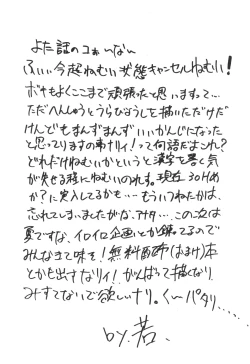 よた話のコォいない
ふぃぃ今超ねむい状態キャンセルねむい!
ボキもよくここまで頑張ったと思いますって…
ただへんしゅうとうらびょうしを描いただけだ
けんどもまんずまんずいいかんじになった
と思ってりますの事ナリィ!って何語だよこれ?
どれだけねむいかというと漢字を書く気
が失せる程にねむいのれす。現在30Hめ
か?に突入してるかも…もういつねたかは、
忘れてしまいましたがな、みタ…。この次は
夏ですな、イロイロ企画とか練ってるので
みんなきて味そ!無料配布(まるけ)本
とかも出すなりィ!がんばって描くなり
みすてないで欲しいナリ。く〜パタリ……
by.若.